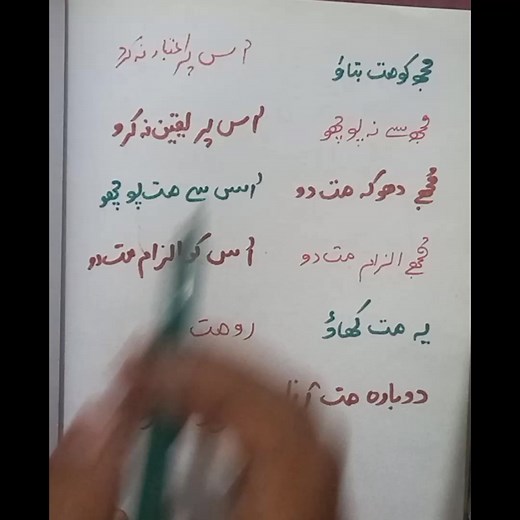 مجھ کو مت بتاؤ
اس پر اعتبار نہ کرو
مجھ سے نہ پوچھو
اس پر یقین نہ کرو
مجھے دھوکہ مت دو
اس سے مت پوچھو
مجھے الزام مت دو
اس کو الزام مت دو
یہ مت کھاؤ
رو مت
دوبارہ مت